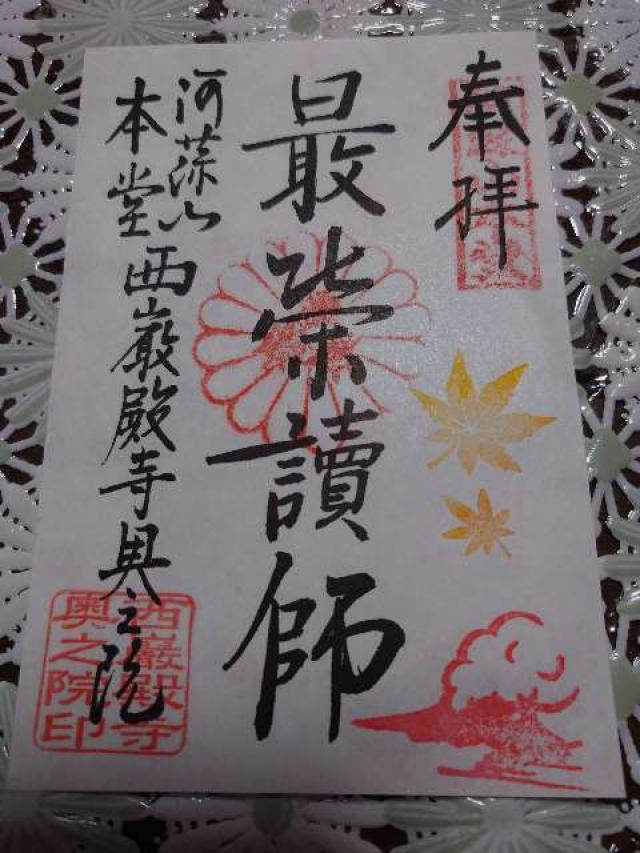 奉拝
最栄讀師
阿蘇山
本堂西巖殿寺奥之院
西巖殿寺
奥之院印